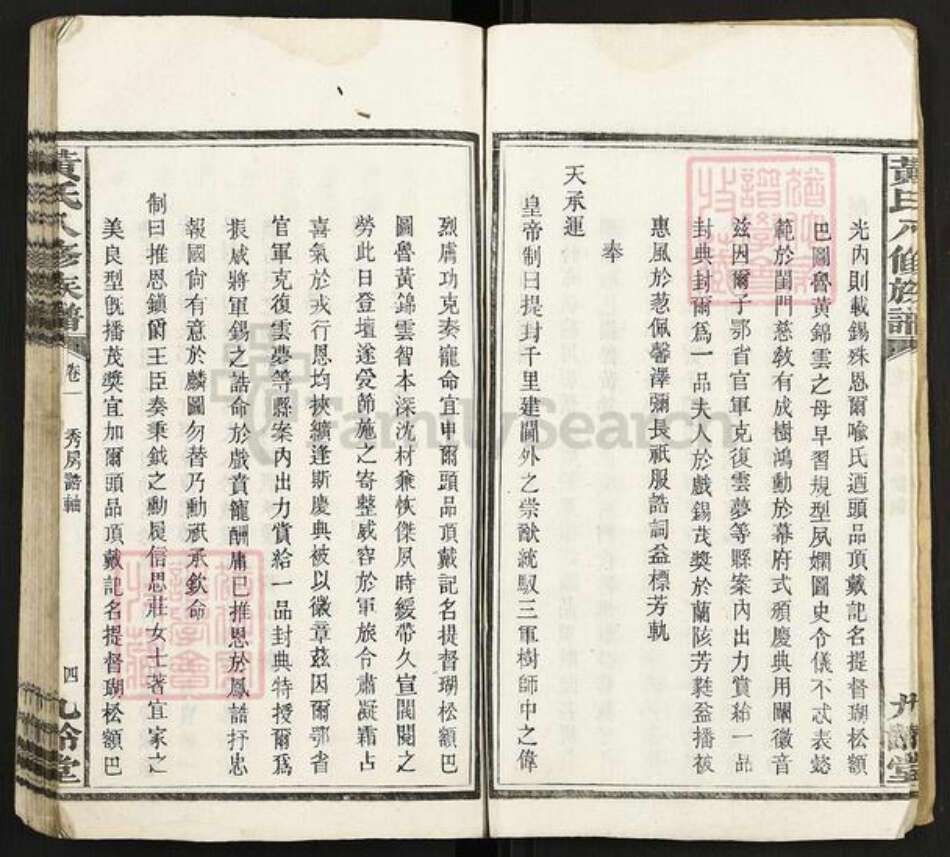 黃氏八修族譜
九齡堂
光內則載錫殊恩爾喩氏迺頭品頂戴記名提督瑚松額
巴圖魯黃錦雲之母早習規型夙嫻圖史令儀不忒表懿
範於閨門慈敎有成樹鴻勳於幕府式頒慶典用闡徽音
兹因爾子鄂省官軍克復雲夢等縣案內出力賞給一品
封典封爾爲一品夫人於戲錫茂奬於蘭陔芳蕤益播被
惠風於蔥佩馨澤彌長祇服誥詞益標芳軌
奉
天承運
皇帝制曰提封千里建閫外之崇猷統馭三軍樹師中之偉
烈膚功克奏寵命宜申爾頭品頂戴記名提督瑚松額巴
圖魯黃錦雲智本深沈材兼俠傑夙時緩帶久宣閫閱之
勞此日登壇遂受節施之寄整威容於軍旅令肅凝霜占
喜氣於戎行恩均挾纊逢斯慶典被以徽章茲因爾鄂省
官軍克復雲夢等縣案內出力賞給一品封典特授爾爲
振威將軍錫之誥命於戲賁寵酬庸已推恩於鳳誥抒忠
報國尙有意於麟圖勿替乃勳祇承欽命
制曰推恩鎭爵王臣奏秉鉞之勳履信思莊女士著宜家之
美良型旣播茂奬宜加爾頭品頂戴記名提督瑚松額巴
黃氏八修族譜
卷一
秀房誥軸
四
九齡堂
FamilySearch